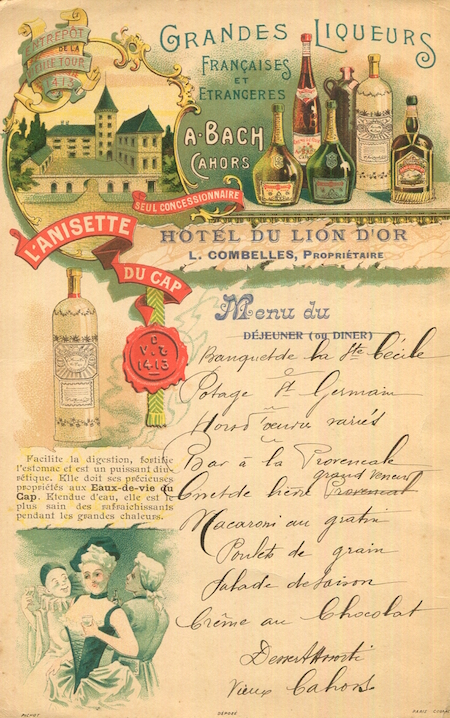 ENTREPÔT
DE LA
VIEILLE TOUR
1413
GRANDES LIQUEURS
FRANÇAISES
ET
ETRANGERES
A. BACH
CAHORS
SEUL CONCESSIONNAIRE
L'ANISETTE
DU CAP
HÔTEL DU LION D'OR
L. COMBELLES, PROPRIÉTAIRE
V.T.
1413
Menu du
DÉJEUNER (ou DINER)
Banquet de la Ste Cécile
Potage St Germain
Hors d'œuvre variés
Bar à la Provencale
grand veneur
Civet de lièvre Provencal
Macaroni au gratin
Poulets de grain
Salade de saison
Crême au Chocolat
Dessert Assorti
Vieux Cahors
Facilite la digestion, fortifie
l'estomac et est un puissant diu-
rétique. Elle doit ses précieuses
propriétés aux Eaux-de-vie du
Cap. Etendue d'eau, elle est le
plus sain des rafraichissants
pendant les grandes chaleurs.
PICHOT
DÉPOSÉ
PARIS